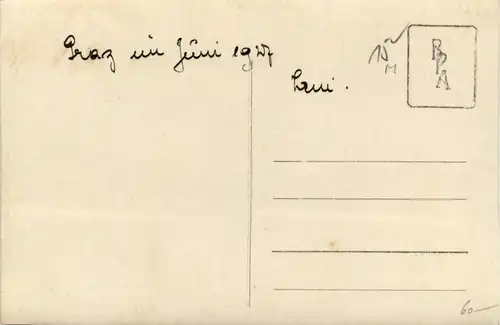 Graz im Juni 1927
Lini.
10
M
R
P
A
60—